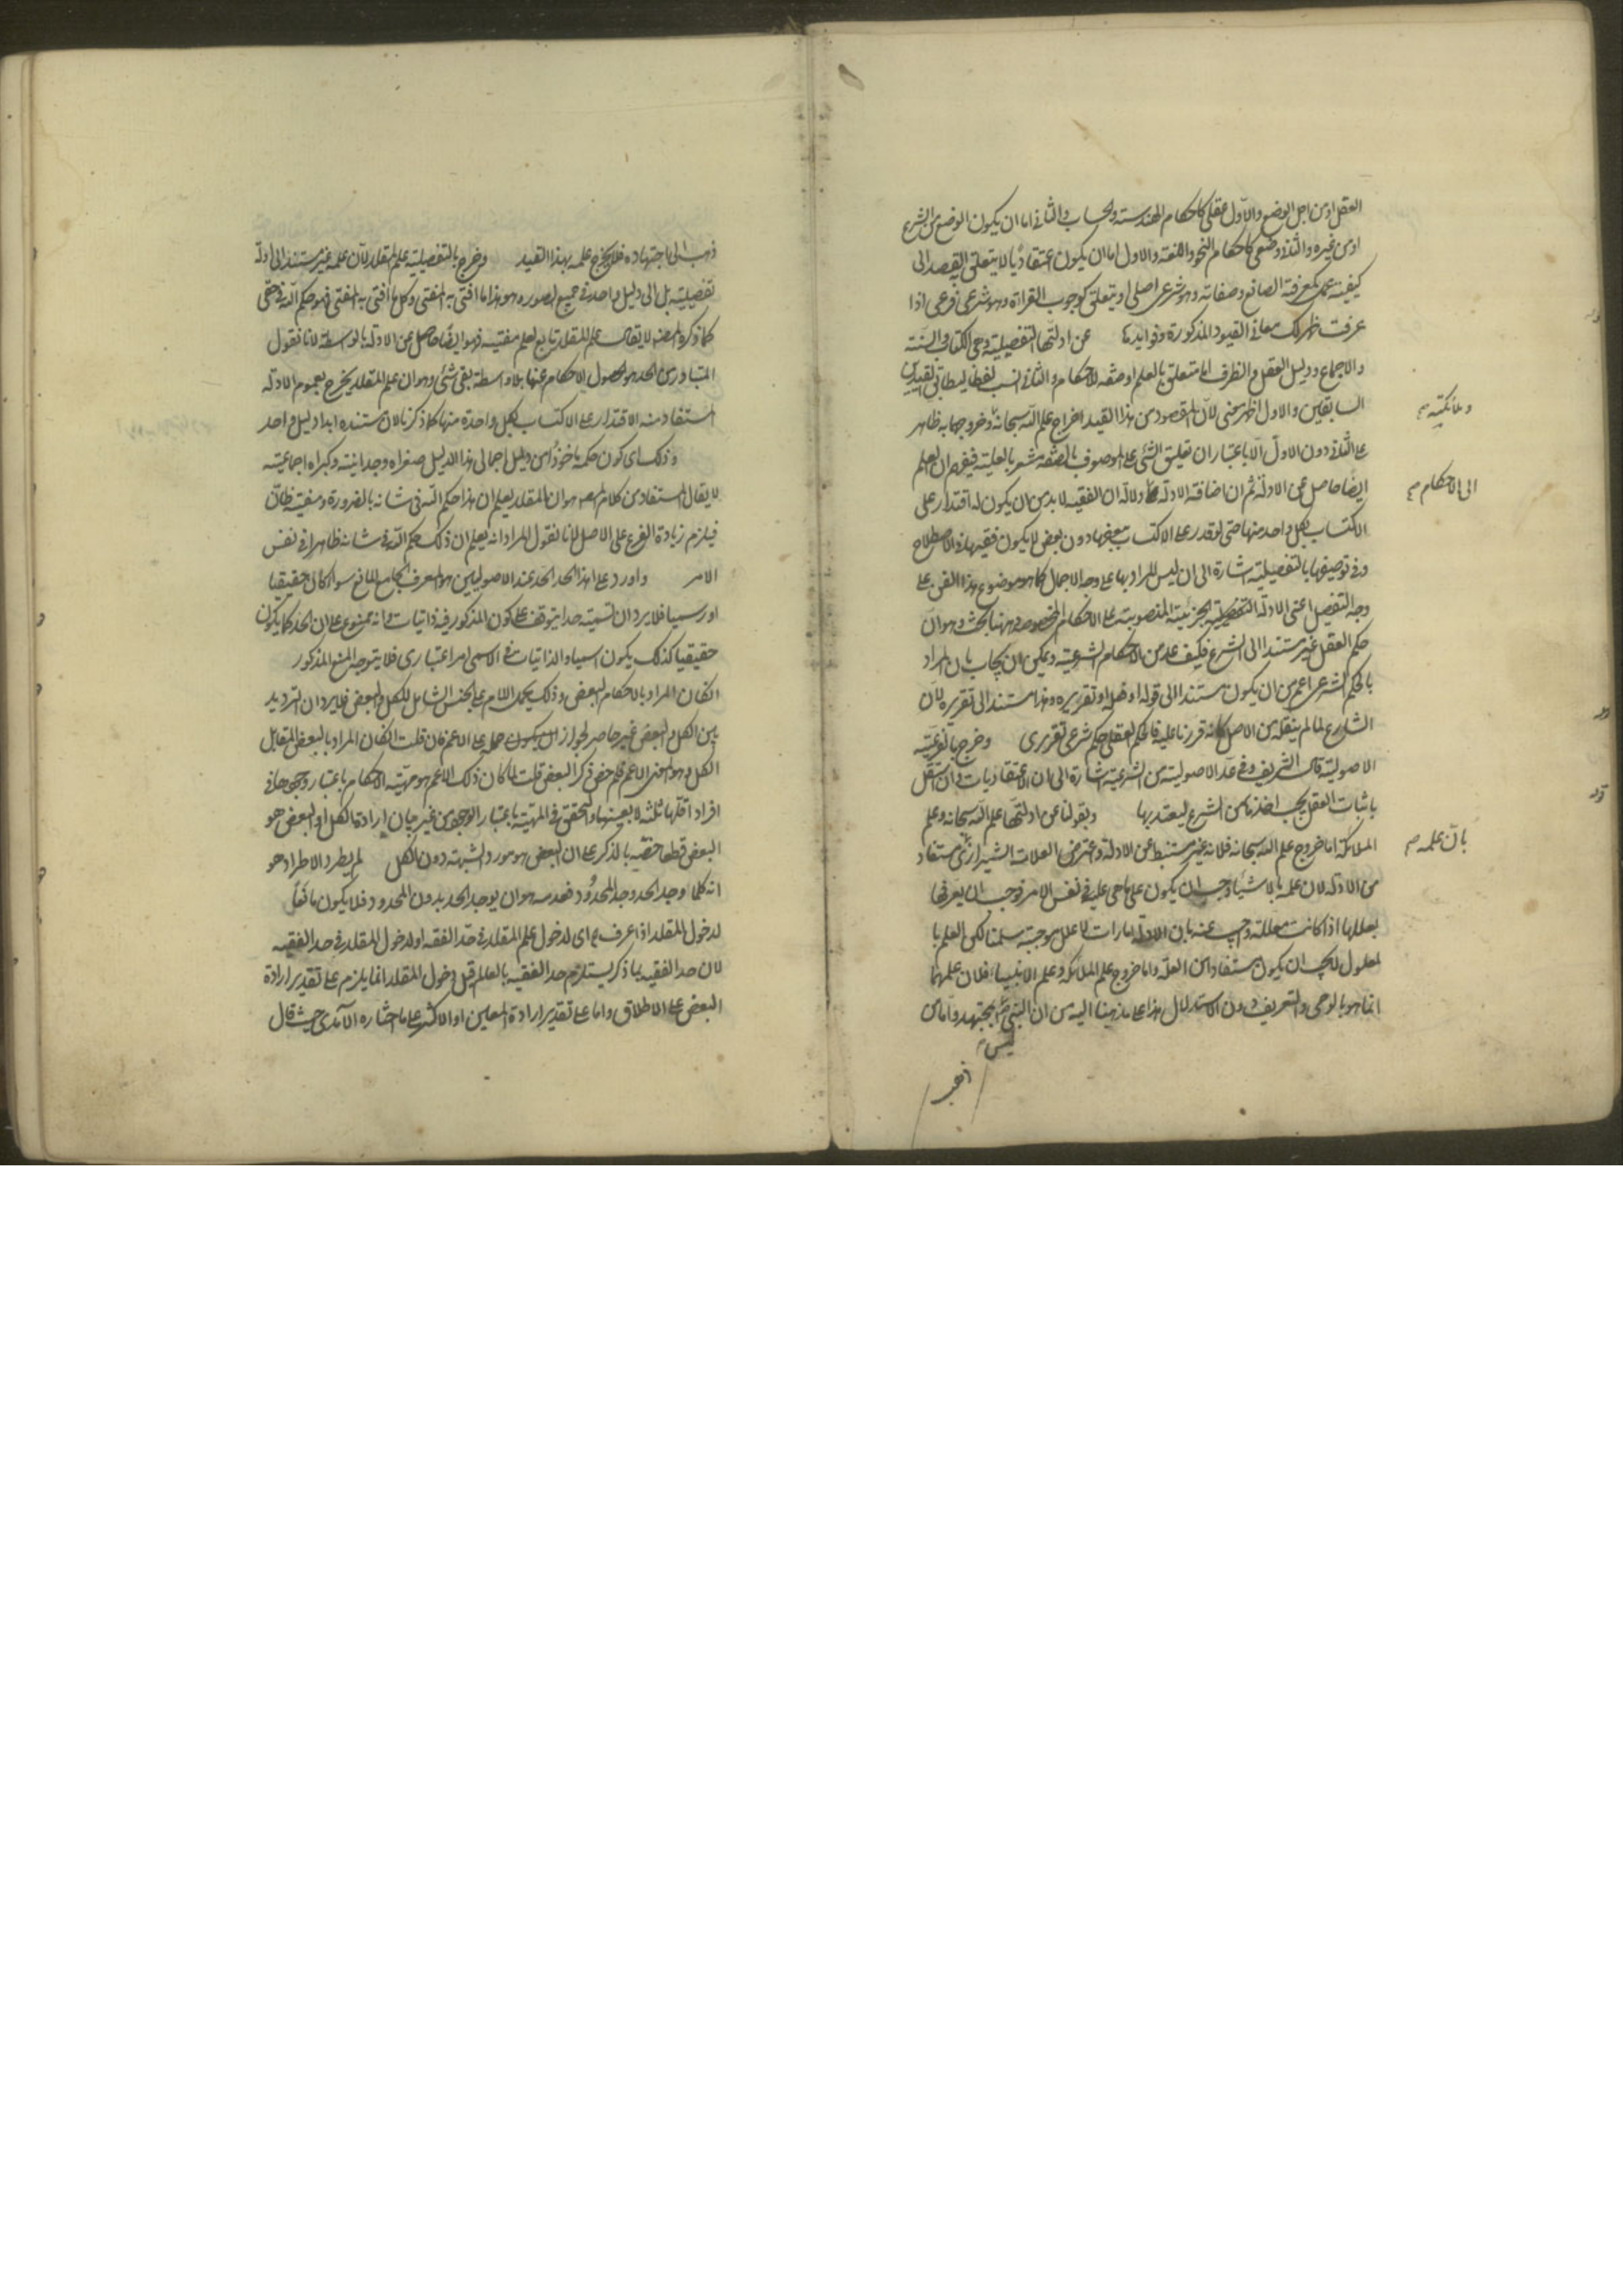 العقل او من اجل الوضع والاول عقلى كاحكام الهندسة والحساب والثانى اما ان يكون الوضع من الشرع
او من غيره والثانى وضعى كاحكام النحو واللغة والاول اما ان يكون اعتقاديا لا يتعلق القصد الى
كيفية عمل كمعرفة الصانع وصفاته وهو شرعى اصلى او يتعلق كوجوب القراءة وهو شرعى فرعى اذا
عرفت ظهر لك معانى القيود المذكورة وفوايدها عن ادلتها التفصيلية وهى الكتاب والسنة
والاجماع ودليل العقل والظرف اما متعلق بالعلم او صفة للاحكام والثانى انسب لفظا ليطابق القيدين
السابقين والاول اظهر معنى لان المقصود من هذا القيد اخراج علم الله سبحانه وخروجها به ظاهر
على الثانى دون الاول الا باعتبار ان تعليق الشئ على الموصوف بالصفة مشعر بالعلية فيفهم ان العلم
ايضا حاصل عن الادلة ثم ان اضافة الادلة دلالة ان الفقيه لا بد من ان يكون له اقتدار على
الاكتساب بكل واحد منها حتى لو قدر على الاكتساب ببعضها دون بعض لا يكون فقيها فى الاصطلاح
وفى توصيفها بالتفصيلية اشارة الى ان ليس المراد بها على وجه الاجمال كما هو موضوع هذا الفن بل على
وجه التفصيل اعنى الادلة التفصيلية الجزئية المنصوبة على الاحكام المخصوصة وههنا بحث وهو ان
حكم العقل غير مستند الى الشرع فكيف عد من الاحكام الشرعية ويمكن ان يجاب بان المراد
بالحكم الشرعى اعم من ان يكون مستندا الى قوله او فعله او تقريره وهذا مستند الى تقريره لان
الشارع لما لم ينقله من الاصل كانه قررنا عليه فالحكم العقلى حكم شرعى تقريرى وخرج بالفرعية
الاصولية قال الشريف وفى عد الاصولية من الشرعية اشارة الى ان الاعتقاديات وان استقل
باثبات العقل يجب اخذها من الشرع ليعتد بها وبقولنا عن ادلتها علم الله سبحانه وعلم
الملائكة اما خروج علم الله سبحانه فلانه غير مستنبط عن الادلة واعترض العلامة الشيرازى مستفاد
من الادلة لان علمه بالاشياء وجب ان يكون على ما هى عليه فى نفس الامر فوجب ان يعرفها
بعللها اذا كانت معللة واجيب عنه بان الادلة امارات لا علل موجبة سلمنا لكن العلم با
لمعلول لا يجب ان يكون مستفادا من العلة واما خروج علم الملائكة وعلم الانبياء فلان علمهما
انما هو بالوحى والتعريف دون الاستدلال هذا على مذهبنا اليه من ان النبى بمجتهد واما من
ليس
وملائكته صح
الى الاحكام صح
بان علمه صح
ذهب الى اجتهاده فلا يخرج علمه بهذا القيد وخرج بالتفصيلية علم المقلد لان علمه غير مستند الى ادلة
تفصيلية بل الى دليل واحد فى جميع الصور وهو هذا ما افتى به المفتى وكل ما افتى به المفتى فهو حكم الله فى حقى
كما ذكره المصنف لا يقال علم المقلد تابع لعلم مفتيه فهو ايضا حاصل عن الادلة بالواسطة لانا نقول
المتبادر من الحد هو حصول الاحكام عنها بلا واسطة بقى شئ وهو ان علم المقلد يخرج بعموم الادلة
المستفاد منه الاقتدار على الاكتساب بكل واحدة منها كما ذكرنا لان مستنده ابدا دليل واحد
وذلك اى كون حكمه ماخوذا من دليل اجمالى هذا الدليل صغراه وجدانية وكبراه اجماعية
لا يقال المستفاد من كلام المص هو ان المقلد يعلم ان هذا حكم الله فى شانه بالضرورة ومفتيه ظان
فيلزم زيادة الفرع على الاصل لانا نقول المراد انه يعلم ان ذلك حكم الله فى شانه ظاهرا فى نفس
الامر واورد على هذا الحد الحد عند الاصوليين هو المعرف الجامع المانع سواء كان حقيقيا
او رسميا فلا يرد ان تسمية حدا يتوقف على كون المذكور فيه ذاتيات وانه ممنوع على ان الحد كما يكون
حقيقيا كذلك يكون اسميا والذاتيات فى الاسمى امر اعتبارى فلا يتوجه المنع المذكور
ان كان المراد بالاحكام البعض وذلك بحمل اللام على الجنس الشامل للكل والبعض فلا يرد ان الترديد
بين الكل والبعض غير حاصر لجواز ان يكون حمله على الاعم فان قلت ان كان المراد بالبعض المقابل
الكل وهو اخص الاعم فلم خص ذكر البعض قلت لما كان ذلك الاعم هو مهية الاحكام باعتبار وجودها فى
افراد اقلها ثلثة لا بعينها والمتحقق فى المهية باعتبار الوجود من غير بيان ارادة الكل او البعض هو
البعض قطعا خصه بالذكر على ان البعض هو مورد الشبهة دون الكل لم يطرد الاطراد هو
انه كلما وجد الحد وجد المحدود فعدمه هو ان يوجد الحد بدون المحدود فلا يكون مانعا
لدخول المقلد اذا عرف اى لدخول علم المقلد فى حد الفقه او لدخول المقلد فى حد الفقيه
لان حد الفقيه بما ذكر يستلزم حد الفقيه بالعالم قيل دخول المقلد انما يلزم على تقدير ارادة
البعض على الاطلاق واما على تقدير ارادة المعين او الاكثر على ما اختاره الآمدى حيث قال